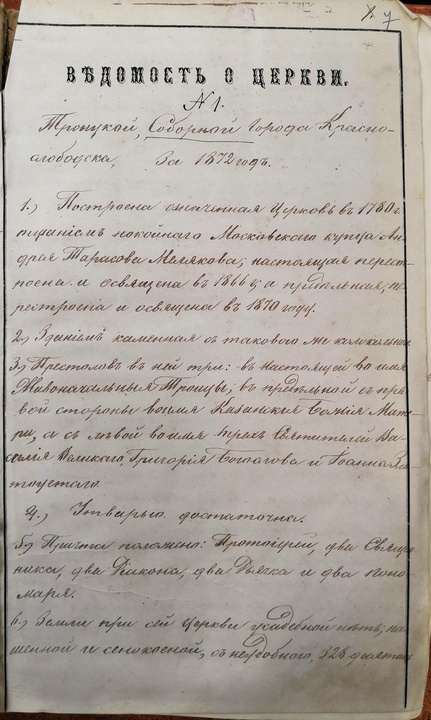 7
ВѢДОМОСТЬ О ЦЕРКВИ.
№ 1.
Троицкой, Соборной города Красно-
слободска, За 1872 годъ.
1.) Построена означенная Церковь въ 1780 г.
тщаніемъ покойнаго Московскаго купца Ан
дрея Тарасова Мелякова; настоящая перест-
роена и освящена въ 1866 г; а придѣльная, пе
рестроена и освящена въ 1870 году.
2.) Зданіемъ каменная съ таковою же колокольнею
3.) Престоловъ въ ней три: въ настоящей во имя
Живоначальныя Троицы; въ придѣльной съ пра
вой стороны во имя Казанскія Божія Мате-
ри, а съ лѣвой во имя трехъ Святителей Ва-
силія Великаго, Григорія Богослова и Іоанна Зла
тоустаго.
4.) Утварью достаточна.
5.) Причта положено: Протоіерей, два Свяще
ника, два Діакона, два Дьячка и два поно
маря.
6.) Земли при сей Церкви усадебной нѣтъ; па
шенной и сенокосной, съ неудобною, 328 десятинъ